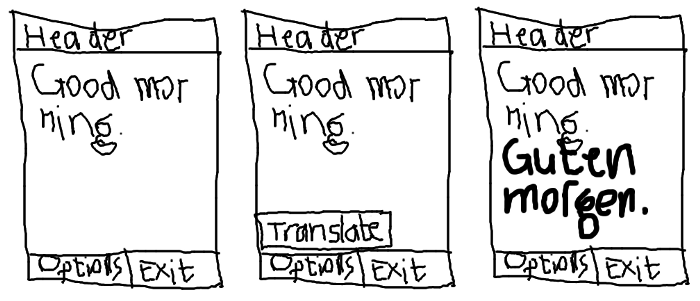 Header
Good mor
ning.
Options Exit
Header
Good mor
ning.
Translate
Options Exit
Header
Good mor
ning.
Guten
morgen.
Options Exit